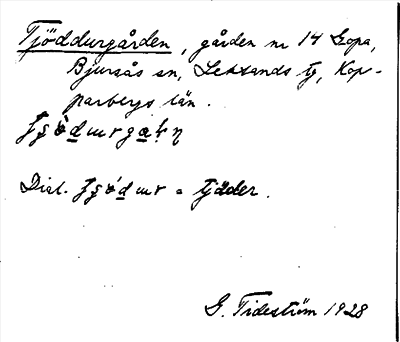 Tjöddurgården, gården nr 14 Gopa,
Bjursås sn, Leksands tg, Kop-
parbergs län.
Dial. = tjäder.
G. Tideström 1928